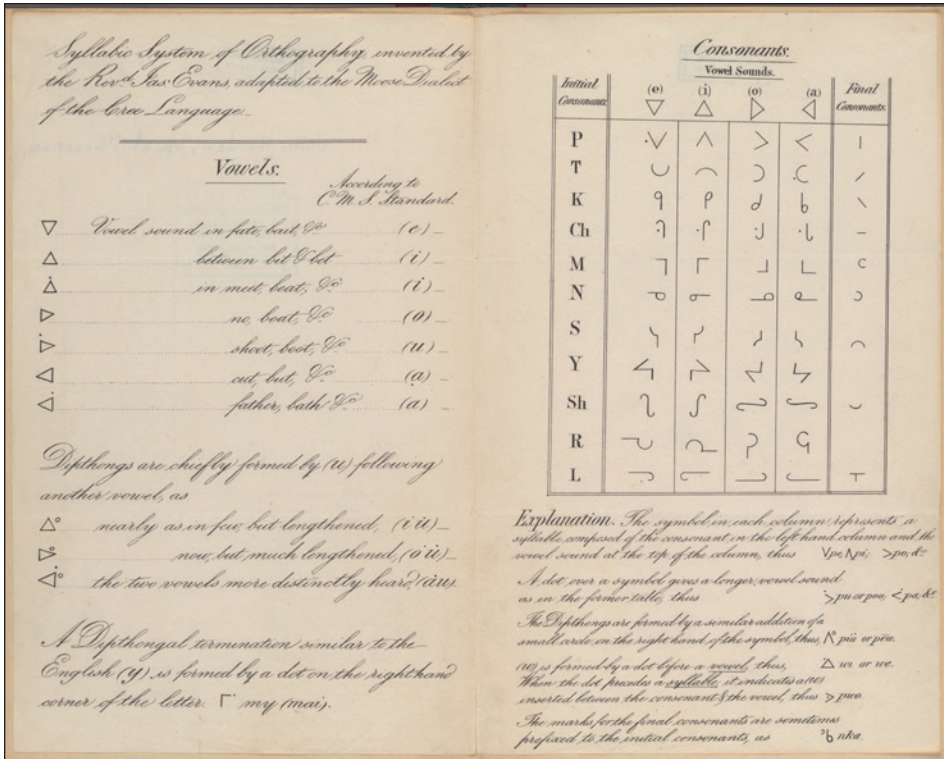 Syllabic System of Orthography, invented by
the Revd. Jas Evans, adapted to the Moose Dialect
of the Cree Language.
Vowels.
According to
C. M. S. Standard.
▽ Vowel sound in fate, bait, &c (e) –
△ between bit & bet (i) –
ᐄ in meet, beat, &c (i) –
▷ no, boat, &c (o) –
ᐆ shoot, boot, &c (u) –
◁ cut, but, &c (a) –
ᐋ father, bath &c (a) –
Dipthongs are chiefly formed by (u) following
another vowel, as
△° nearly as in few, but lengthened, (i ü) –
ᐆ° now, but much lengthened, (o ü) –
ᐋ° the two vowels more distinctly heard, (àu).
A Dipthongal termination similar to the
English (y) is formed by a dot on the right hand
corner of the letter. ᒥ· my (mai).
Consonants.
Vowel Sounds.
Initial Consonants. (e) ▽ (i) △ (o) ▷ (a) ◁ Final Consonants.
P ·ᐯ ᐱ ᐳ ᐸ ᑊ
T ᑌ ᑎ ᑐ ·ᑕ ᐟ
K ᑫ ᑭ ᑯ ᑲ ᐠ
Ch ·ᒉ ·ᒋ ·ᒍ ·ᒐ ᐨ
M ᒣ ᒥ ᒧ ᒪ ᒼ
N ᓀ ᓂ ᓄ ᓇ ᐣ
S ᓭ ᓯ ᓱ ᓴ ᐢ
Y ᔦ ᔨ ᔪ ᔭ
Sh ᔐ ᔑ ᔓ ᔕ ᐡ
R ᕃ ᕆ ᕈ ᕋ
L ᓓ ᓕ ᓗ ᓚ ⊤
Explanation. The symbol in each column represents a
syllable composed of the consonant in the left hand column and the
vowel sound at the top of the column, thus ᐯ pe, ᐱ pi; ᐳ po, &c
A dot over a symbol gives a longer vowel sound
as in the former table, thus ᐴ pu or poo, ᐹ pa, &c
The Dipthongs are formed by a similar addition of a
small circle on the right hand of the symbol, thus, ᐱ° piü or pew.
(w) is formed by a dot before a vowel, thus, ·△ wi or we.
When the dot precedes a syllable, it indicates a (w)
inserted between the consonant & the vowel, thus ·ᐳ pwo.
The marks for the final consonants are sometimes
prefixed to the initial consonants, as ᐣᑲ nka.